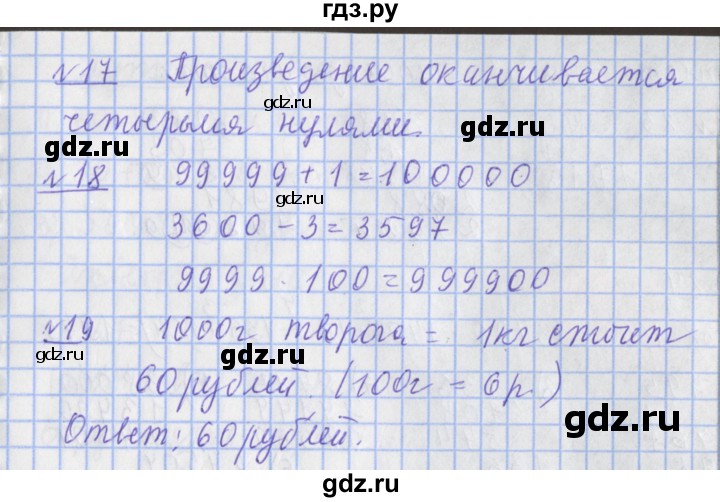 гдз.ру
№17 Произведение оканчивается
gdz.ru
четырьмя нулями.
gdz.ru
№18 99999 + 1 = 100000
gdz.ru
3600 - 3 = 3597
9999 · 100 = 999900
№19 1000г творога = 1кг стоит
gdz.ru
60 рублей. (100г = 6р.)
gdz.ru
Ответ: 60 рублей.
gdz.ru